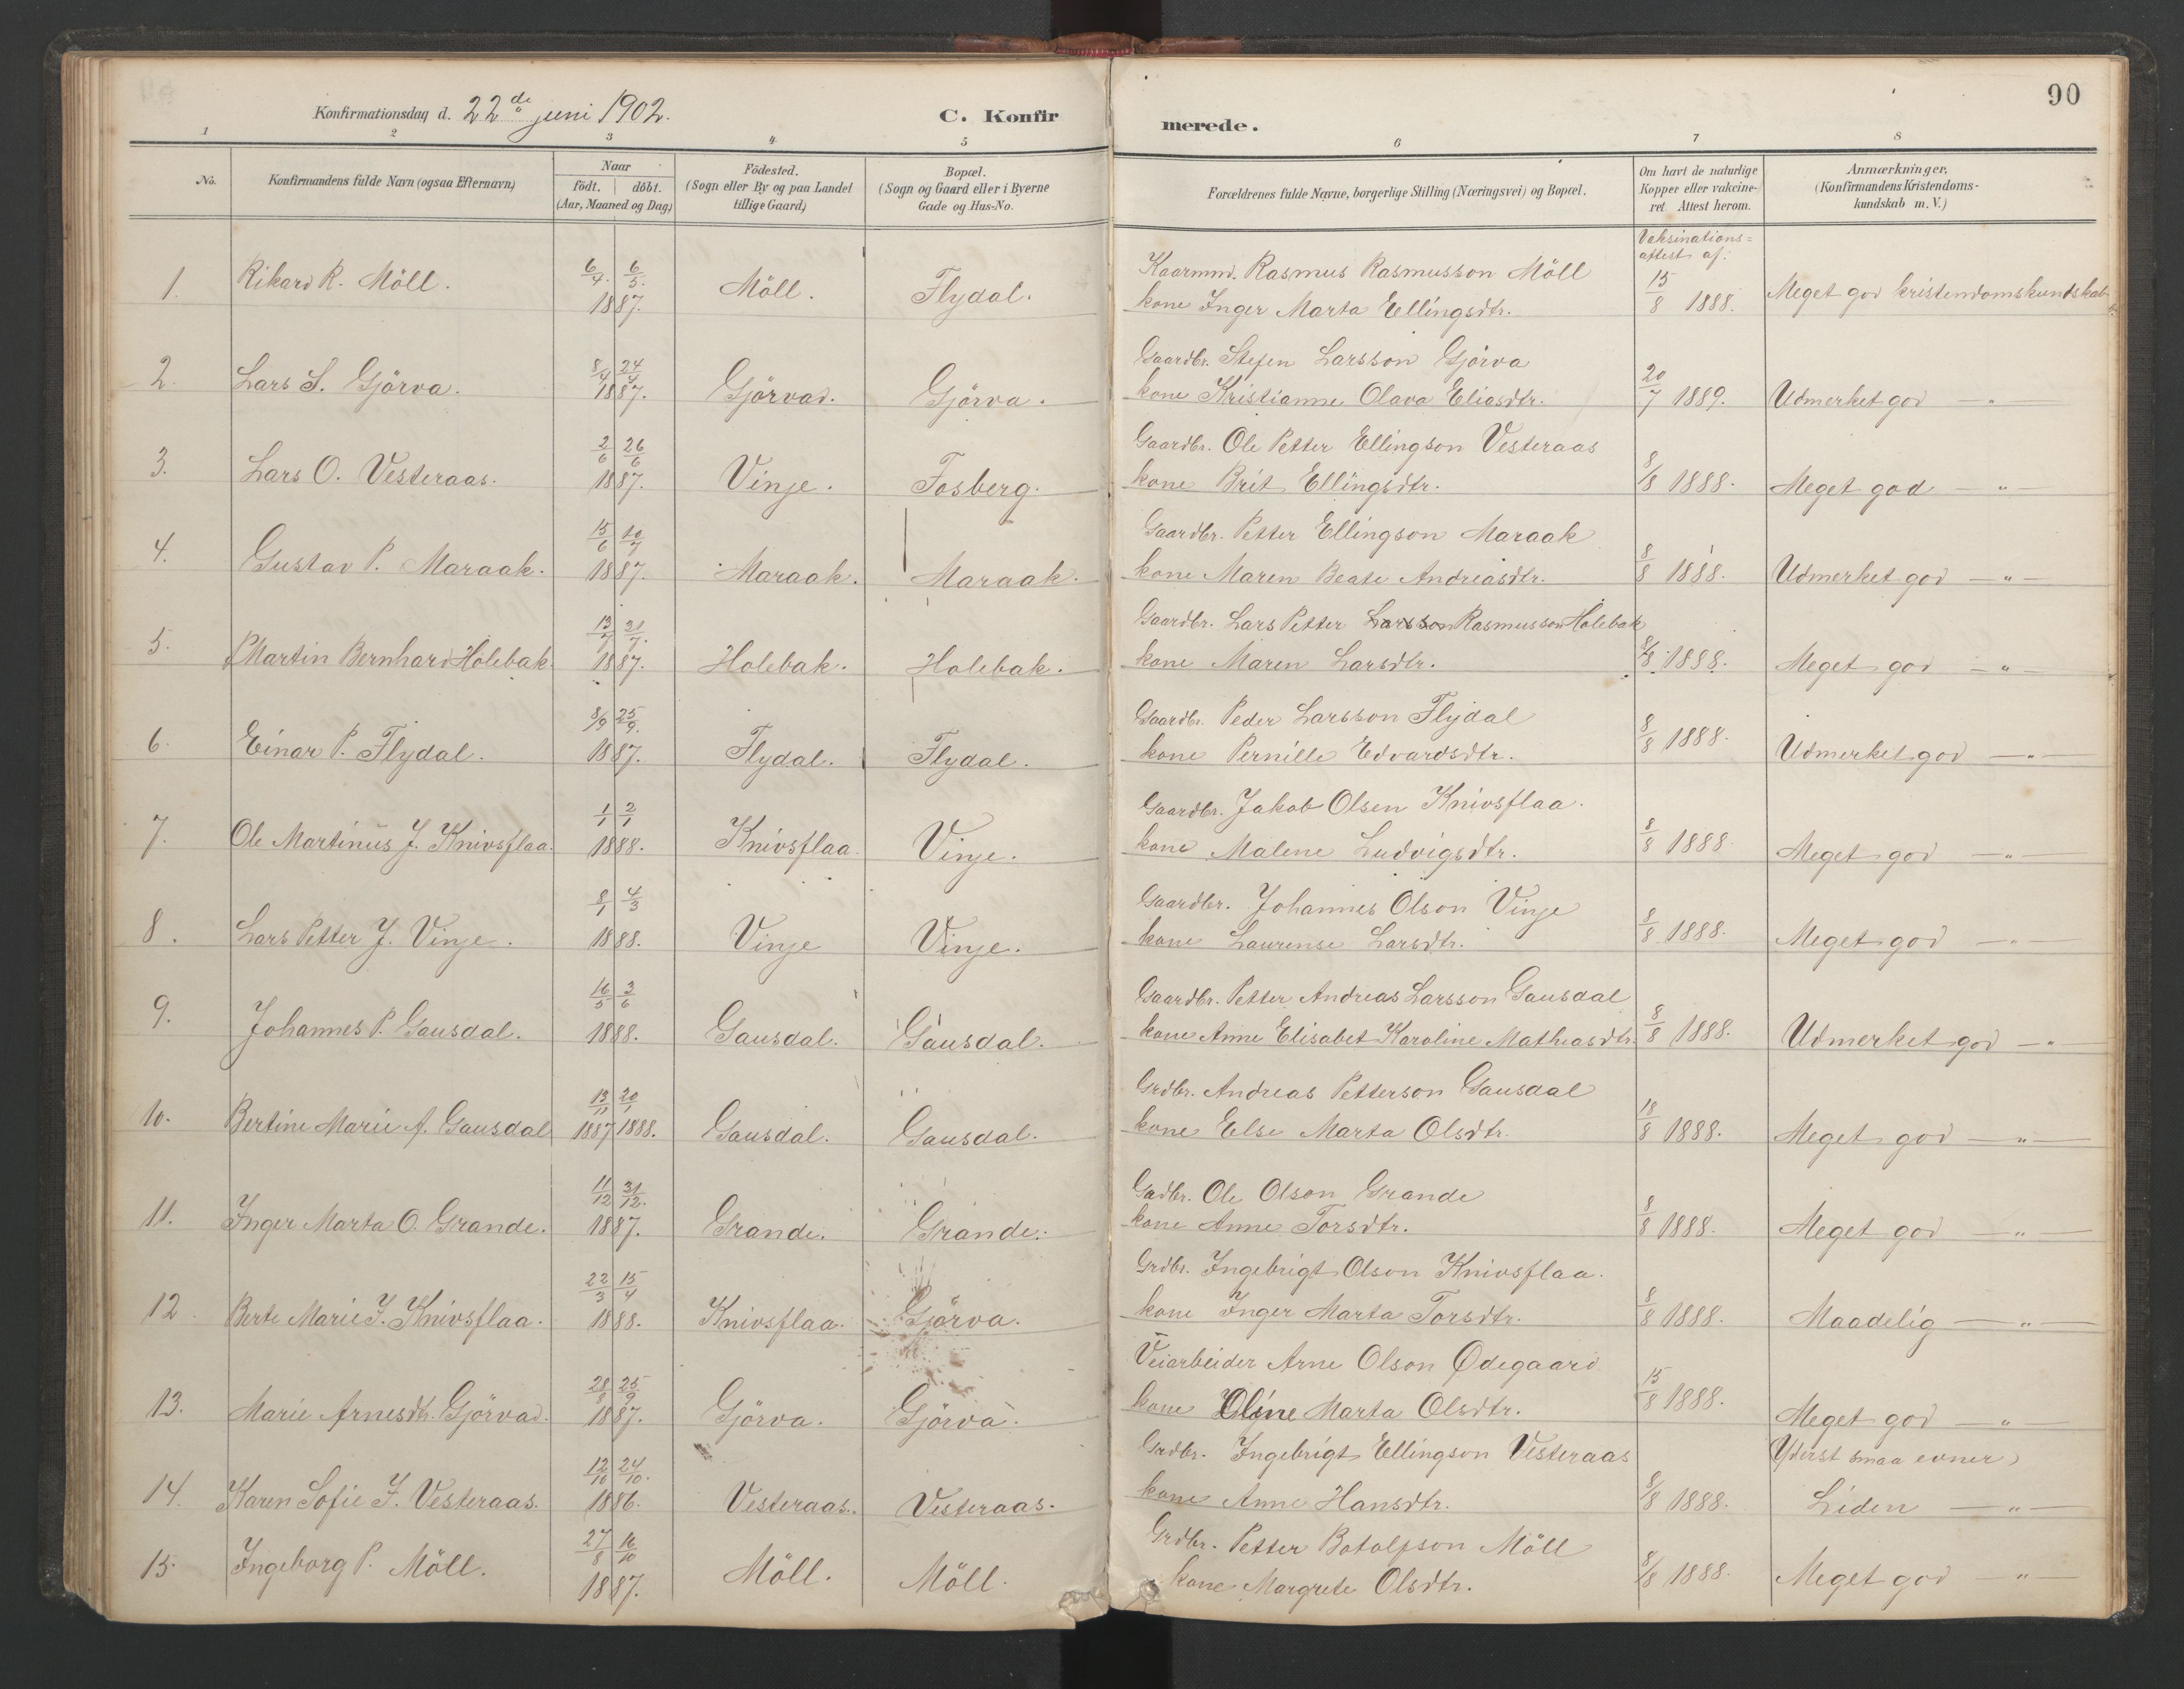 90
Konfirmationsdag d. 22de juni 1902.
C. Konfirmerede.
1 2 3 4 5 6 7 8
No.
Konfirmandens fulde Navn (ogsaa Efternavn)
Naar
födt. döbt.
(Aar, Maaned og Dag)
Födested.
(Sogn eller By og paa Landet
tillige Gaard)
Bopæl.
(Sogn og Gaard eller i Byerne
Gade og Hus-No.
Forældrenes fulde Navne, borgerlige Stilling (Næringsvei) og Bopæl.
Om havt de naturlige
Kopper eller vakcine-
ret Attest herom.
Anmærkninger,
(Konfirmandens Kristendoms-
kundskab m. V.)
Vaksinations=
attest af:
1. Rikard R. Möll. 6/4 6/5 1887. Möll. Flydal. Kaarmnd. Rasmus Rasmusson Möll
kone Inger Marta Ellingsdtr. 15/8 1888. Meget god kristendomskundskab
2. Lars S. Gjörva. 8/4 24/4 1887. Gjörvad. Gjörva. Gaardbr. Stefen Larsson Gjörva
kone Kristianne Olava Eliasdtr. 20/7 1889. Udmerket god —"—
3. Lars O. Vesteraas. 2/6 26/6 1887. Vinje. Fosberg. Gaardbr. Ole Petter Ellingson Vesteraas
kone Brit Ellingsdtr. 8/8 1888. Meget god —"
4. Gustav P. Maraak. 15/6 10/7 1887. Maraak. Maraak. Gaardbr. Petter Ellingson Maraak
kone Maren Beate Andreasdtr. 8/8 1888. Udmerket god —"—
5. Martin Bernhard Holebak. 13/7 31/7. 1887. Holebak. Holebak. Gaardbr. Lars Petter Larsson Rasmusson Holebak
kone Maren Larsdtr. 8/8 1888. Meget god —"—
6. Einar P. Flydal. 8/9 25/9. 1887. Flydal. Flydal. Gaardbr. Peder Larsson Flydal
kone Pernille Edvardsdtr. 8/8 1888. Udmerket god —"—
7. Ole Martinus J. Knivsflaa. 1/1 2/1 1888. Knivsflaa. Vinje. Gaardbr. Jakob Olsen Knivsflaa.
kone Malene Ludvigsdtr. 8/8 1888. Meget god —"—
8. Lars Petter J. Vinje. 8/1 4/3 1888. Vinje Vinje. Gaardbr. Johannes Olson Vinje
kone Laurense Larsdtr. 8/8 1888. Meget god —"—
9. Johannes P. Gausdal. 16/5 3/6 1888. Gausdal. Gausdal. Gaardbr. Petter Andreas Larsson Gausdal
kone Anne Elisabet Karoline Mathiasdtr. 8/8 1888. Udmerket god —"—
10. Bertine Marie A. Gausdal 13/11 20/1 1887 1888. Gausdal. Gausdal. Grdbr. Andreas Petterson Gausdal
kone Else Marta Olsdtr. 18/8 1888. Meget god —"—
11. Inger Marta O. Grande. 11/12 31/12. 1887. Grande. Grande. Gadbr. Ole Olson Grande
kone Anne Torsdtr. 8/8 1888. Meget god —"—
12. Berte Marie I. Knivsflaa. 22/3 15/4 1888. Knivsflaa. Gjörva. Grdbr. Ingebrigt Olson Knivsflaa.
kone Inger Marta Torsdtr. 8/8 1888. Maadelig —"—
13. Marie Arnesdtr. Gjörvad. 28/8 25/9 1887. Gjörva. Gjörva. Veiarbeider Arne Olson Ødegaard
kone Oline Marta Olsdtr. 15/8 1888. Meget god —"—
14. Karen Sofie I. Vesteraas. 12/10 24/10. 1886. Vesteraas. Vesteraas. Grdbr. Ingebrigt Ellingson Vesteraas
kone Anne Hansdtr. 8/8 1888. (Yderst smaa evner)
Liden —"—
15. Ingeborg P. Möll. 27/8 16/10 1887. Möll. Möll. Grdbr. Petter Botolfson Möll
kone Margrete Olsdtr. 8/8 1888. Meget god —"—